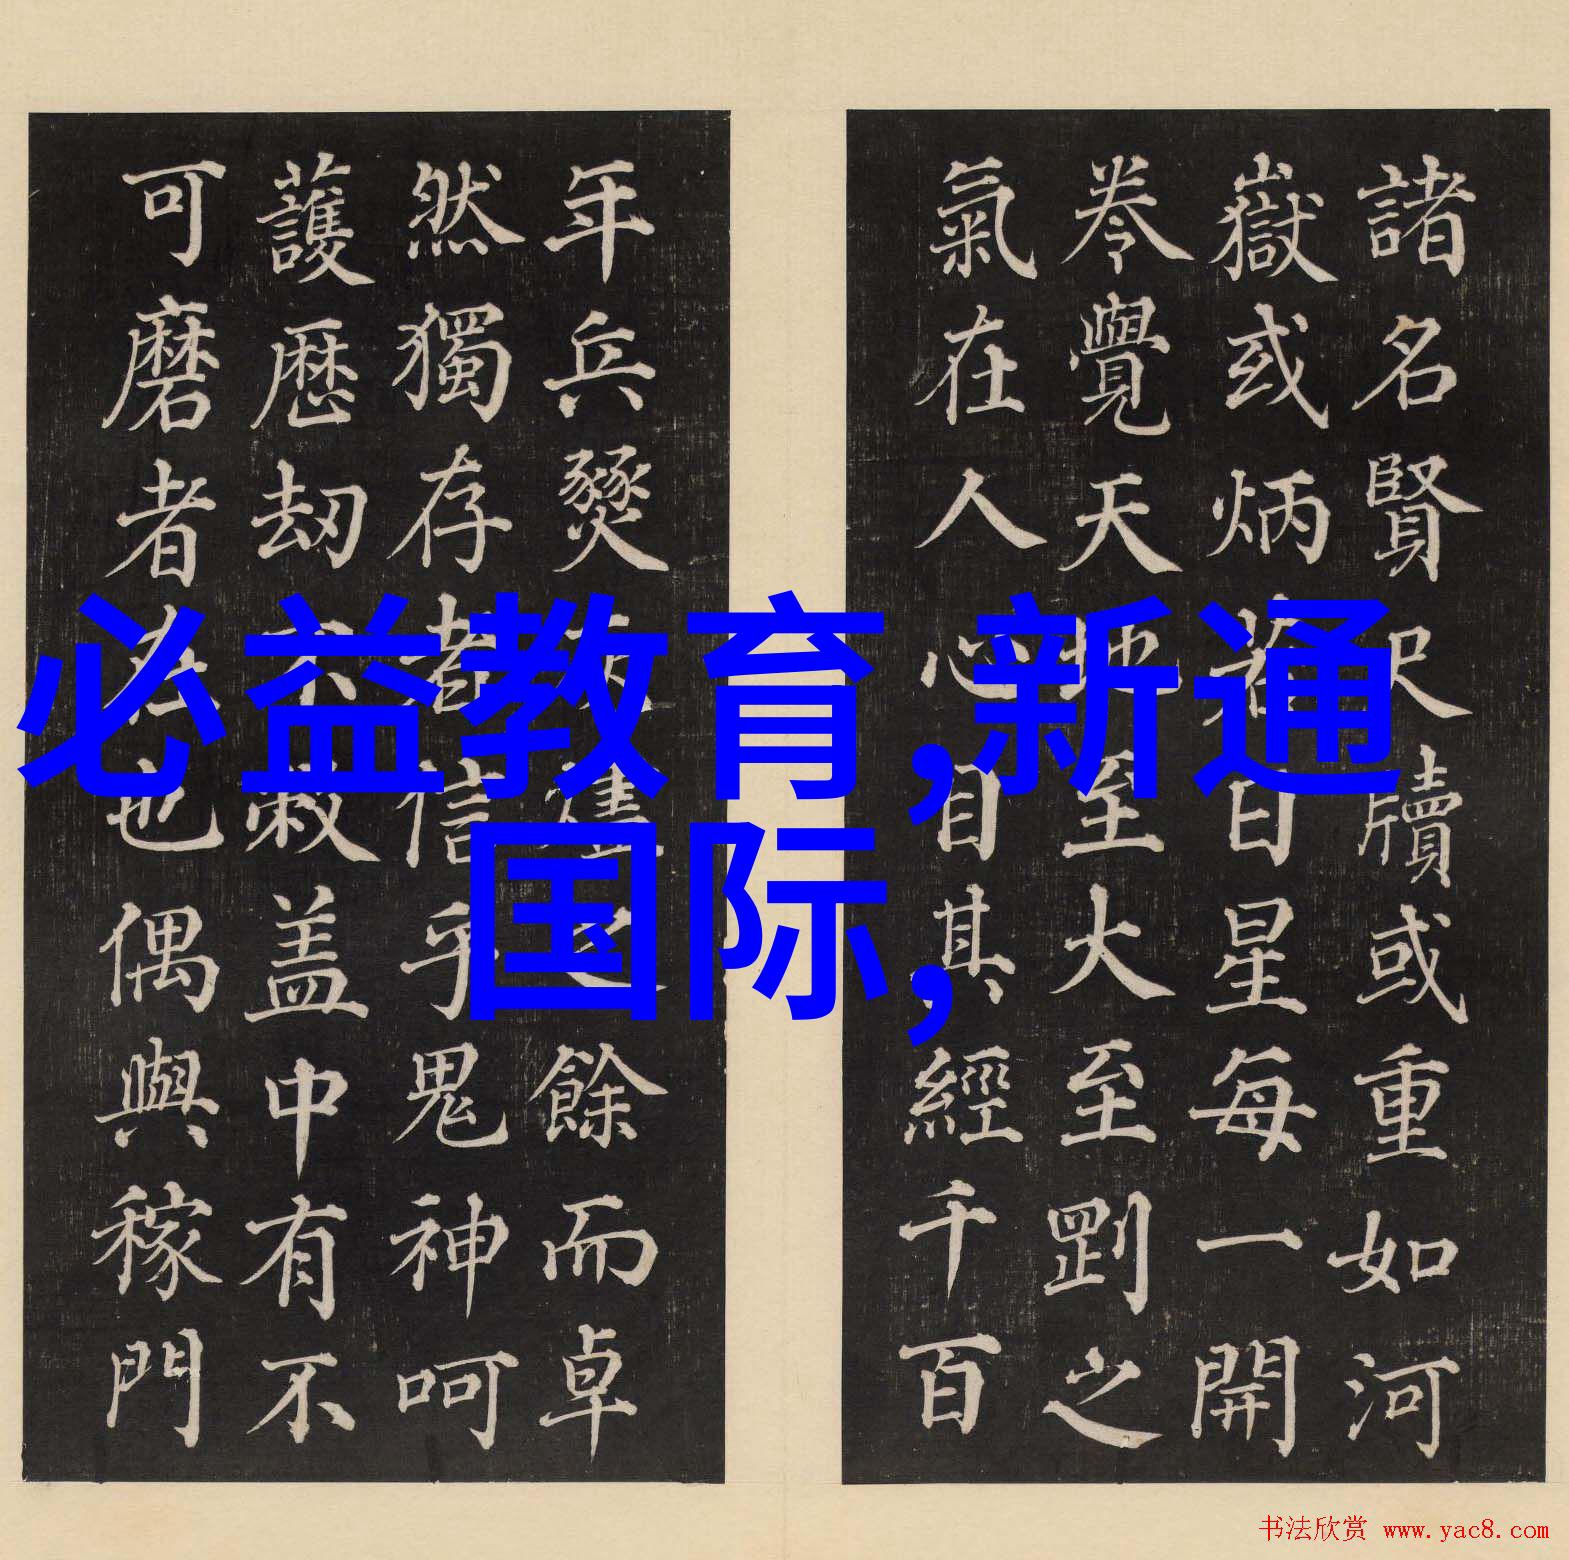 必益教育,新通
国际,
諸名賢尺牘或重如河
嶽或炳若日星每一開
卷覺天地至大至剛之
氣在人心目其經千百
年兵燹灰燼之餘而卓
然獨存者信乎鬼神呵
護歷劫不盖中有不
可磨者在也偶與稼門
书法欣赏 www.yac8.com